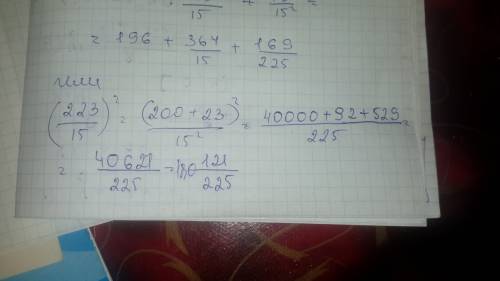 15 + 15² =
= 196 + 364/15 + 169/225
или
(223/15)² = (200 + 23)²/15² = 40000 + 92 + 529/225 =
= 40621/225 = 180 121/225